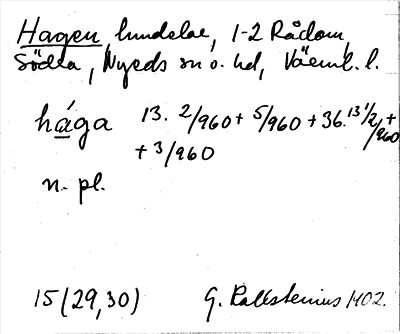 Hagen, hundelar, 1-2 Rådom,
Södra, Nyeds sn o. hd, Värml. l.
håga 13. 2/960 + 5/960 + 36. 13 1/2/960 +
+ 3/960
n. pl.
15 (29,30) G. Kallstenius 1402.